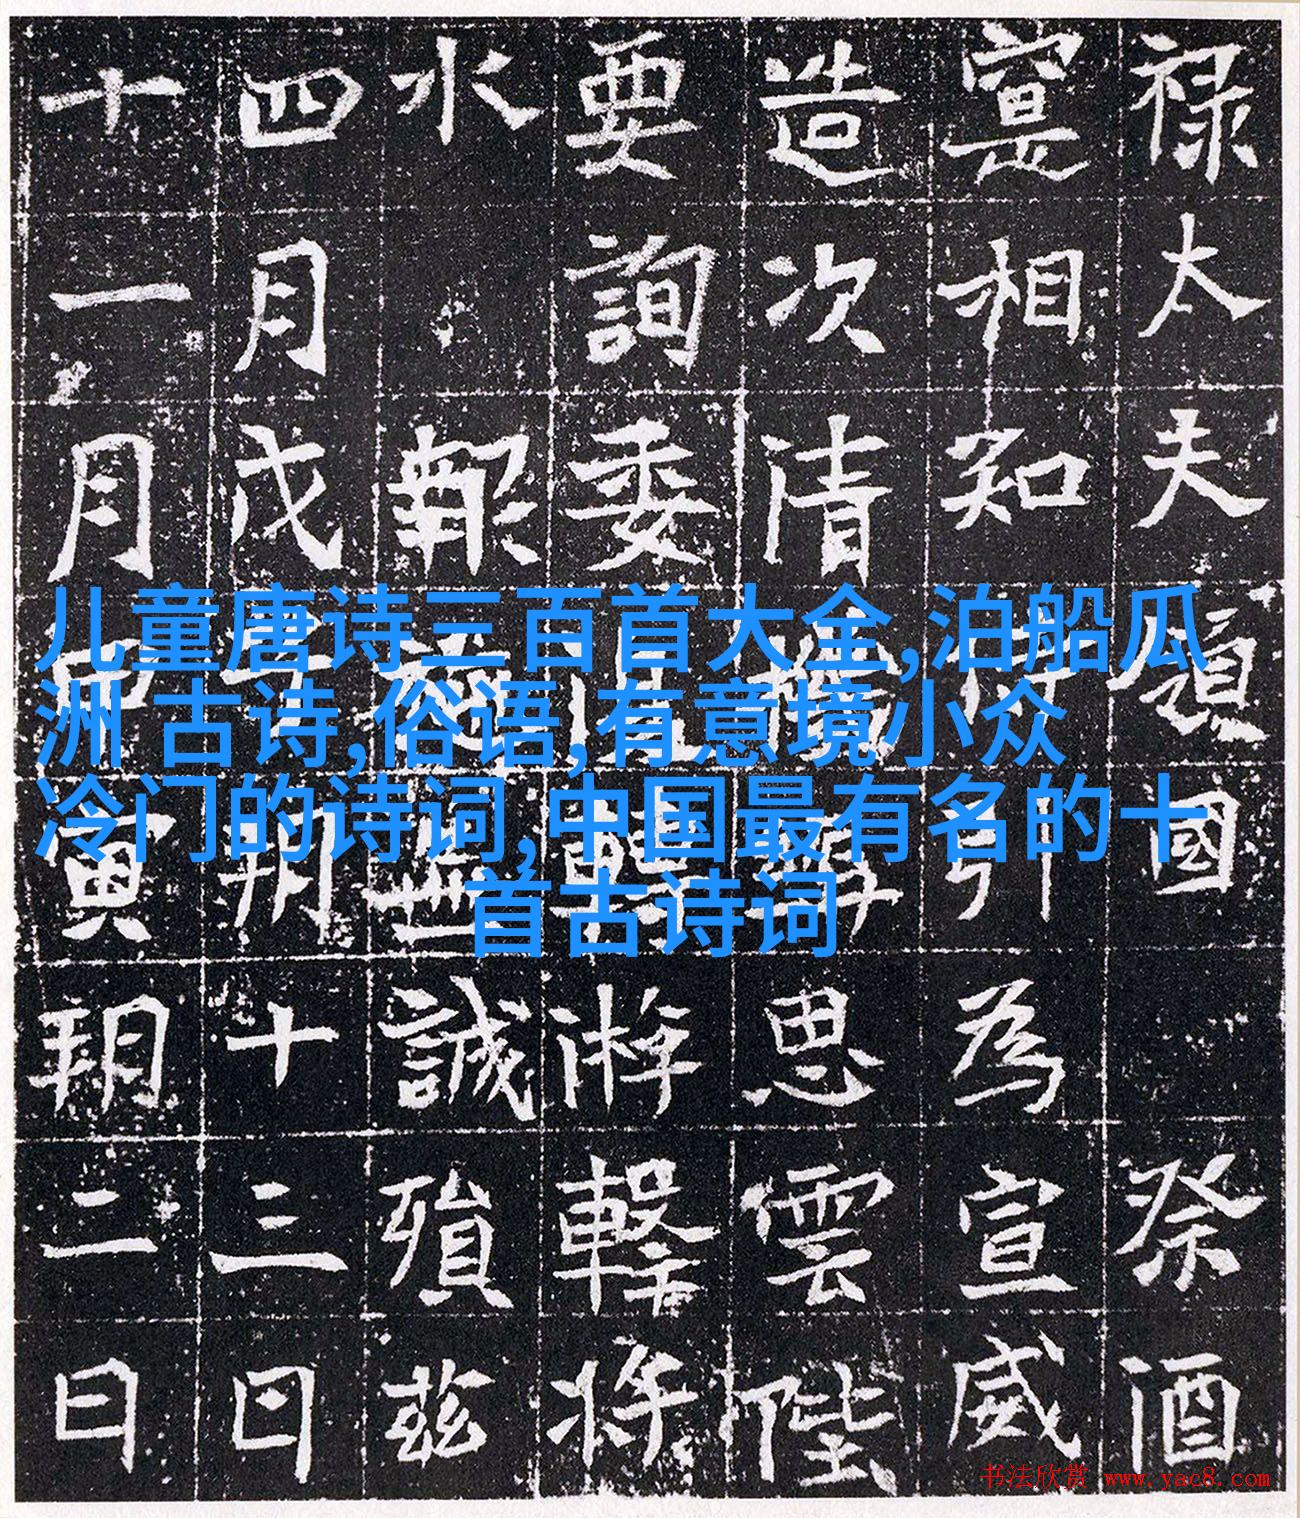 禄太夫領國祭酒
寔相知引為宣威
造次清思雲陛
要詢委游擊將
水報誠殞茲
四月戊子朔十三日
十一月寅朔二日
儿童唐诗三百首大全,泊船瓜
洲 古诗,俗语,有意境小众
冷门的诗词,中国最有名的十
首古诗词
书法欣赏 www.yac8.com